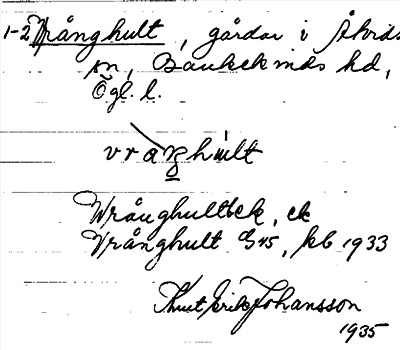 1-2 Vrånghult, gårdar i Åtvids
sn, Bankekinds hd,
Ögl. l.
vraŋhult
Wrånghult ek, ek
Vrånghult G45, kb 1933
Knut Erik Johansson
1935